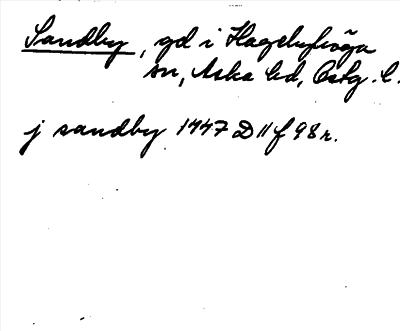 Sandby, gd i Hagebyhöga
sn, Aska hd, Östg. l.
j sandby 1447 D 11 f 98 r.